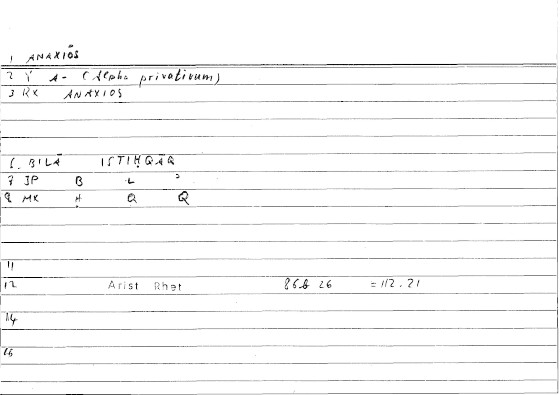 1 ANAXIŌS
2 Y A- (Alpha privativum)
3 RX ANAXIOS
6. BILĀ ISTIḤQĀQ
7 JP B L ʾ
8 MX Ḥ Q Q
11
12 Arist Rhet 86b 26 = 112.21
14
16